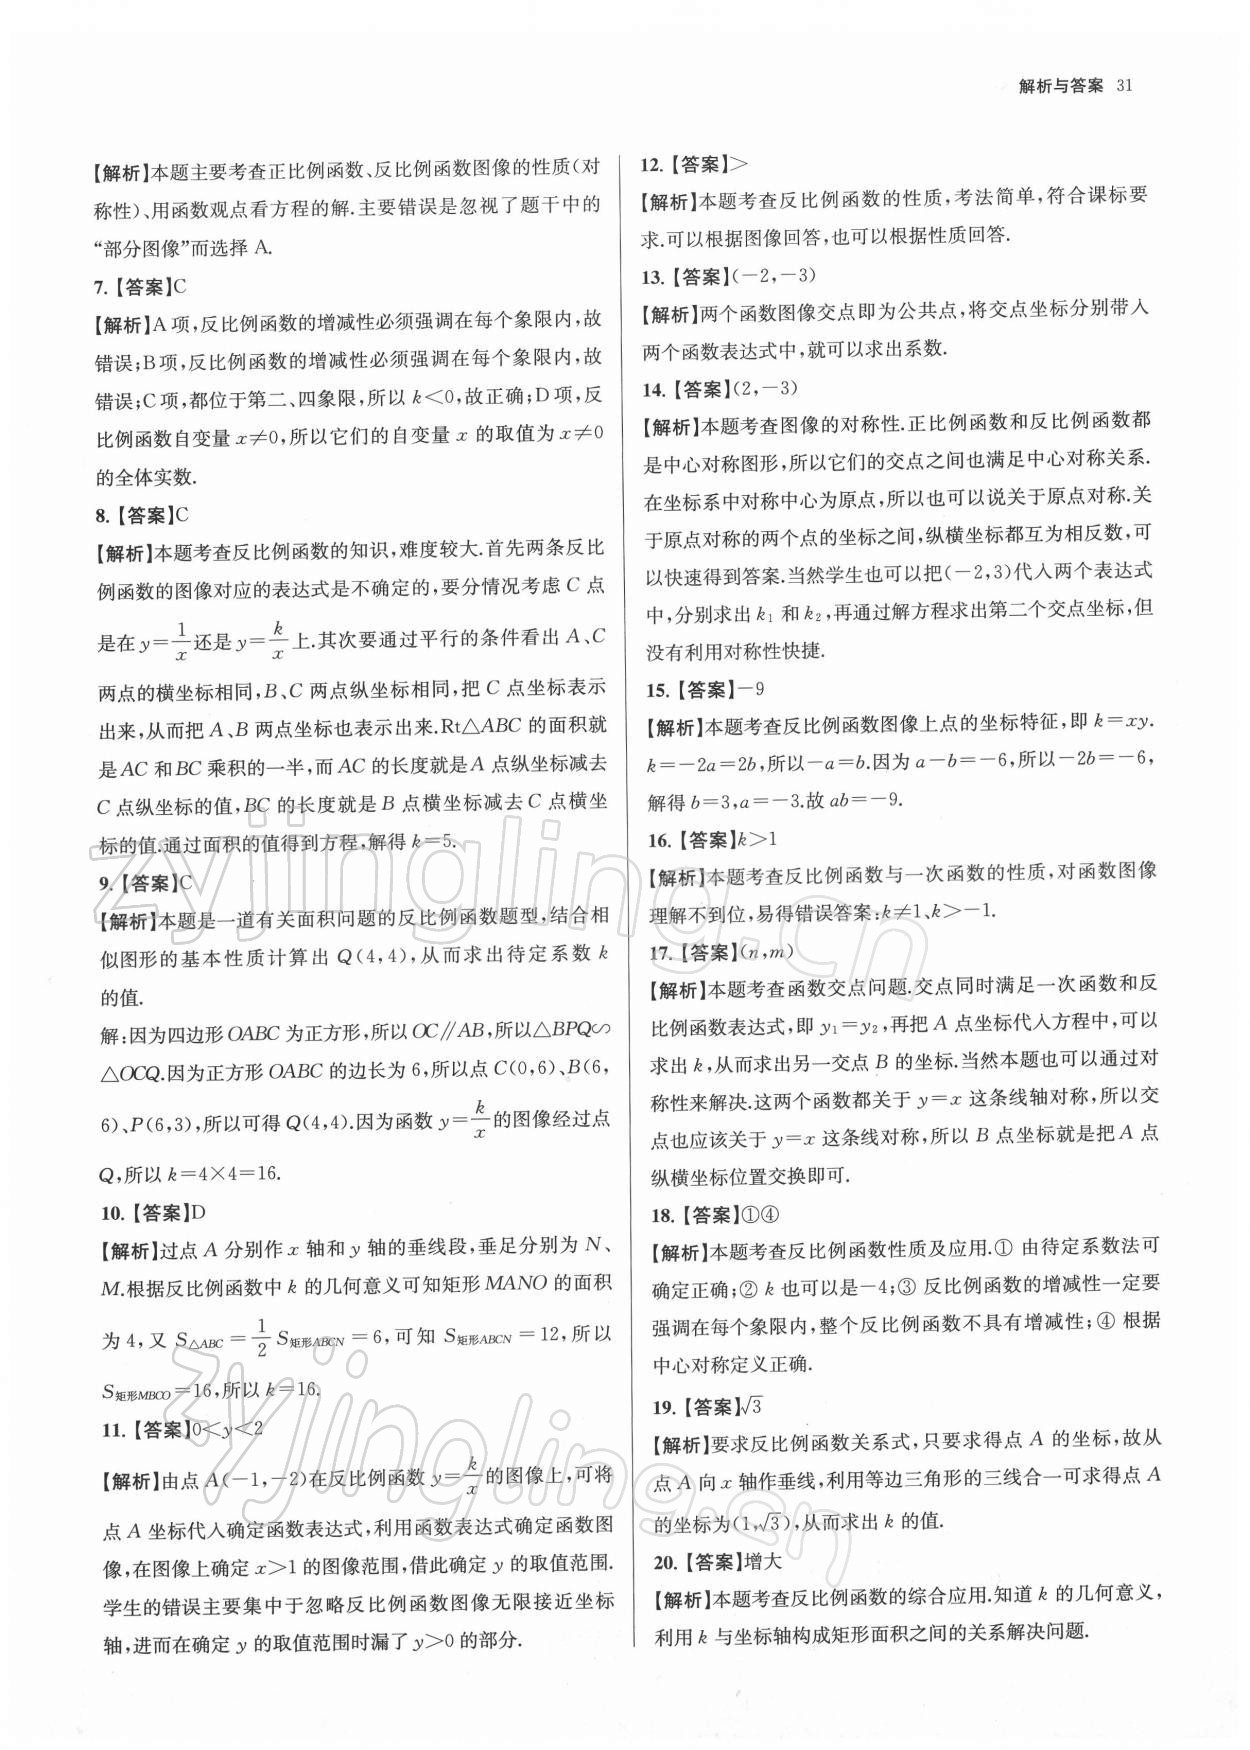 解析与答案 31
【解析】本题主要考查正比例函数、反比例函数图像的性质(对
称性)、用函数观点看方程的解.主要错误是忽视了题干中的
“部分图像”而选择 A.
7.【答案】C
【解析】A项,反比例函数的增减性必须强调在每个象限内,故
错误;B项,反比例函数的增减性必须强调在每个象限内,故
错误;C项,都位于第二、四象限,所以 k<0,故正确;D项,反
比例函数自变量 x≠0,所以它们的自变量 x 的取值为 x≠0
的全体实数.
8.【答案】C
【解析】本题考查反比例函数的知识,难度较大.首先两条反比
例函数的图像对应的表达式是不确定的,要分情况考虑 C 点
是在 y=1/x 还是 y=k/x 上.其次要通过平行的条件看出 A、C
两点的横坐标相同,B、C 两点纵坐标相同,把 C 点坐标表示
出来,从而把 A、B 两点坐标也表示出来.Rt△ABC 的面积就
是AC 和BC 乘积的一半,而 AC 的长度就是A 点纵坐标减去
C 点纵坐标的值,BC 的长度就是 B 点横坐标减去 C 点横坐
标的值.通过面积的值得到方程,解得 k=5.
9.【答案】C
【解析】本题是一道有关面积问题的反比例函数题型,结合相
似图形的基本性质计算出 Q(4,4),从而求出待定系数 k
的值.
解:因为四边形 OABC 为正方形,所以 OC∥AB,所以△BPQ∽
△OCQ.因为正方形 OABC 的边长为 6,所以点 C(0,6)、B(6,
6)、P(6,3),所以可得 Q(4,4).因为函数 y=k/x 的图像经过点
Q,所以 k=4×4=16.
10.【答案】D
【解析】过点 A 分别作 x 轴和 y 轴的垂线段,垂足分别为 N、
M.根据反比例函数中 k 的几何意义可知矩形 MANO 的面积
为 4,又 S△ABC=1/2 S矩形ABCN=6,可知 S矩形ABCN=12,所以
S矩形MBCO=16,所以 k=16.
11.【答案】0<y<2
【解析】由点 A(-1,-2)在反比例函数 y=k/x 的图像上,可将
点 A 坐标代入确定函数表达式,利用函数表达式确定函数图
像,在图像上确定 x>1 的图像范围,借此确定 y 的取值范围.
学生的错误主要集中于忽略反比例函数图像无限接近坐标
轴,进而在确定 y 的取值范围时漏了 y>0 的部分.
12.【答案】>
【解析】本题考查反比例函数的性质,考法简单,符合课标要
求.可以根据图像回答,也可以根据性质回答.
13.【答案】(-2,-3)
【解析】两个函数图像交点即为公共点,将交点坐标分别带入
两个函数表达式中,就可以求出系数.
14.【答案】(2,-3)
【解析】本题考查图像的对称性.正比例函数和反比例函数都
是中心对称图形,所以它们的交点之间也满足中心对称关系.
在坐标系中对称中心为原点,所以也可以说关于原点对称.关
于原点对称的两个点的坐标之间,纵横坐标都互为相反数,可
以快速得到答案.当然学生也可以把(-2,3)代入两个表达式
中,分别求出 k₁ 和 k₂,再通过解方程求出第二个交点坐标,但
没有利用对称性快捷.
15.【答案】-9
【解析】本题考查反比例函数图像上点的坐标特征,即 k=xy.
k=-2a=2b,所以-a=b.因为 a-b=-6,所以-2b=-6,
解得 b=3,a=-3.故 ab=-9.
16.【答案】k>1
【解析】本题考查反比例函数与一次函数的性质,对函数图像
理解不到位,易得错误答案:k≠1、k>-1.
17.【答案】(n,m)
【解析】本题考查函数交点问题.交点同时满足一次函数和反
比例函数表达式,即 y₁=y₂,再把 A 点坐标代入方程中,可以
求出 k,从而求出另一交点 B 的坐标.当然本题也可以通过对
称性来解决.这两个函数都关于 y=x 这条线轴对称,所以交
点也应该关于 y=x 这条线对称,所以 B 点坐标就是把 A 点
纵横坐标位置交换即可.
18.【答案】①④
【解析】本题考查反比例函数性质及应用.① 由待定系数法可
确定正确;② k 也可以是-4;③ 反比例函数的增减性一定要
强调在每个象限内,整个反比例函数不具有增减性;④ 根据
中心对称定义正确.
19.【答案】√3
【解析】要求反比例函数关系式,只要求得点 A 的坐标,故从
点 A 向 x 轴作垂线,利用等边三角形的三线合一可求得点 A
的坐标为(1,√3),从而求出 k 的值.
20.【答案】增大
【解析】本题考查反比例函数的综合应用.知道 k 的几何意义,
利用 k 与坐标轴构成矩形面积之间的关系解决问题.
zyjingling.cn
zyjingling.cn